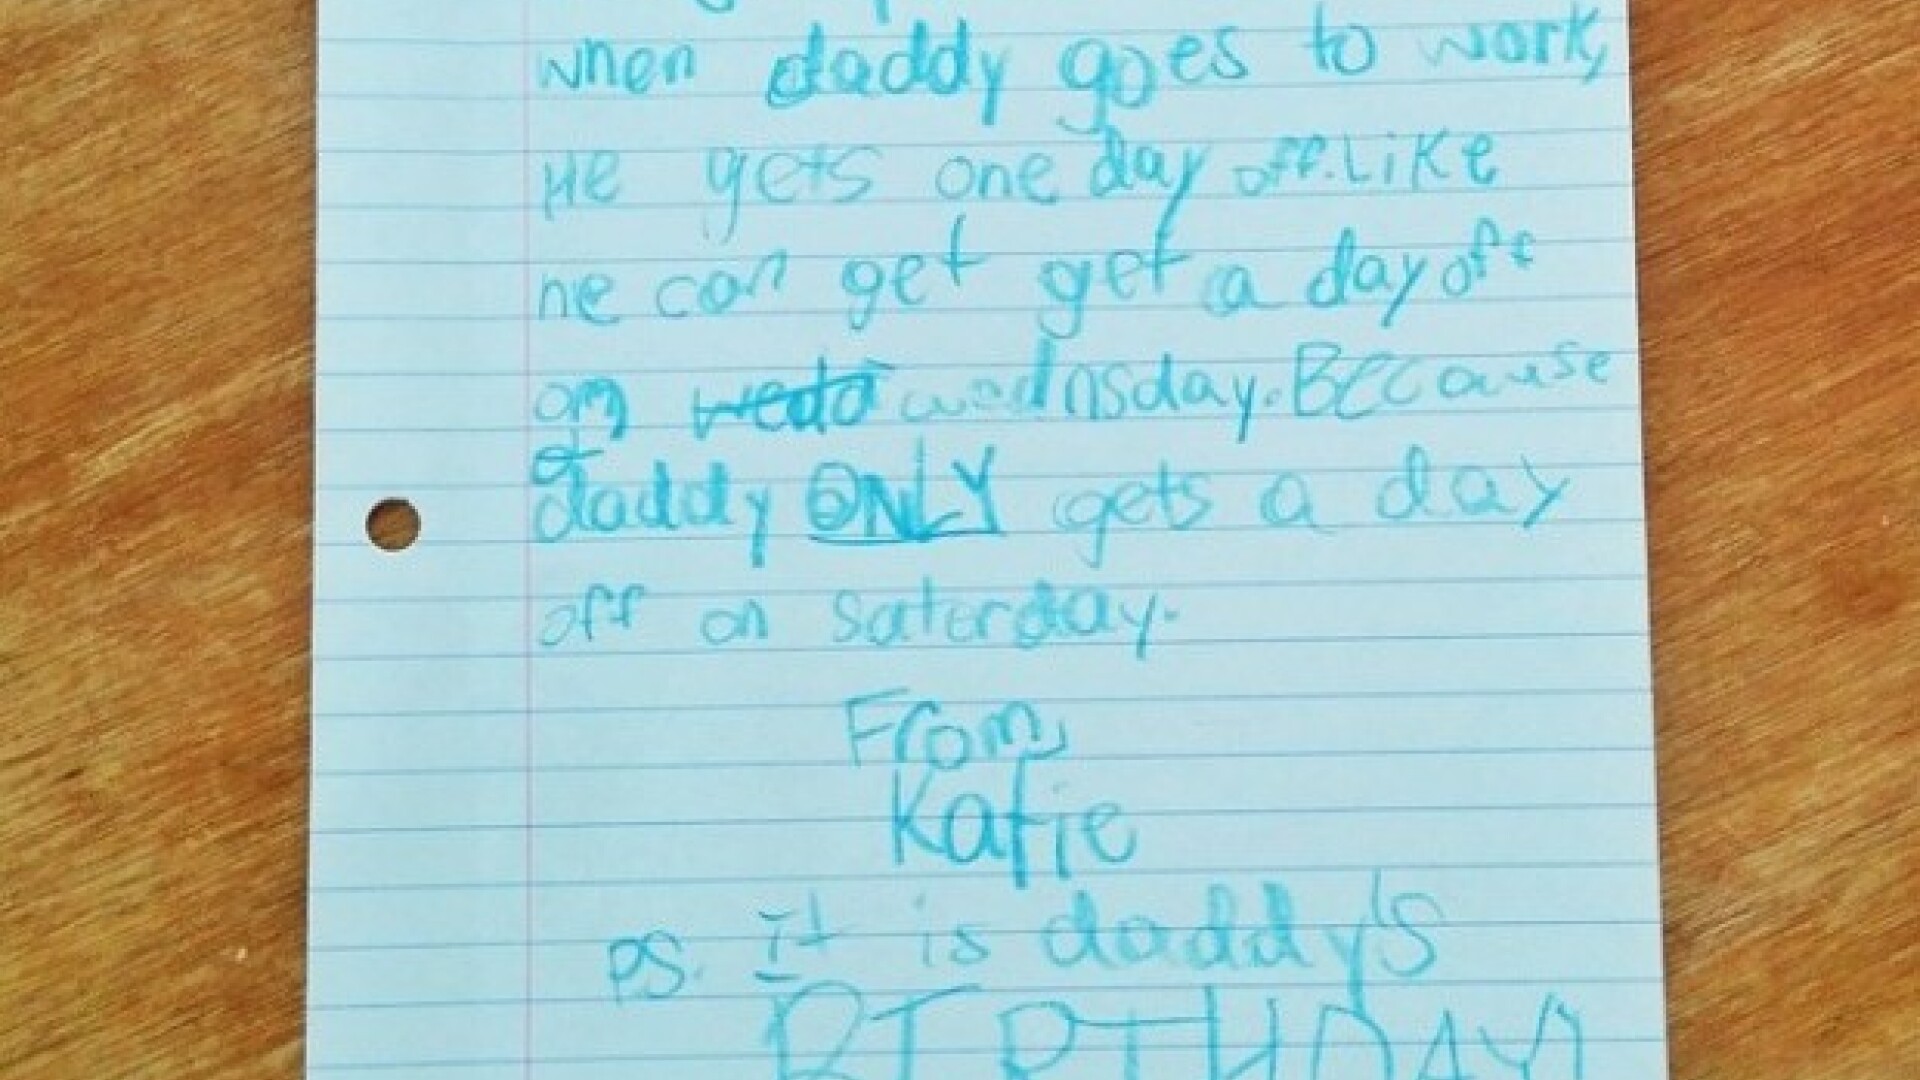 when daddy goes to work,
He gets one day off. Like
he can get get a day off
on wednsday. Because
daddy ONLY gets a day
off on Saterday.
From,
Katie
PS. it is daddy's
BIRTHDAY!